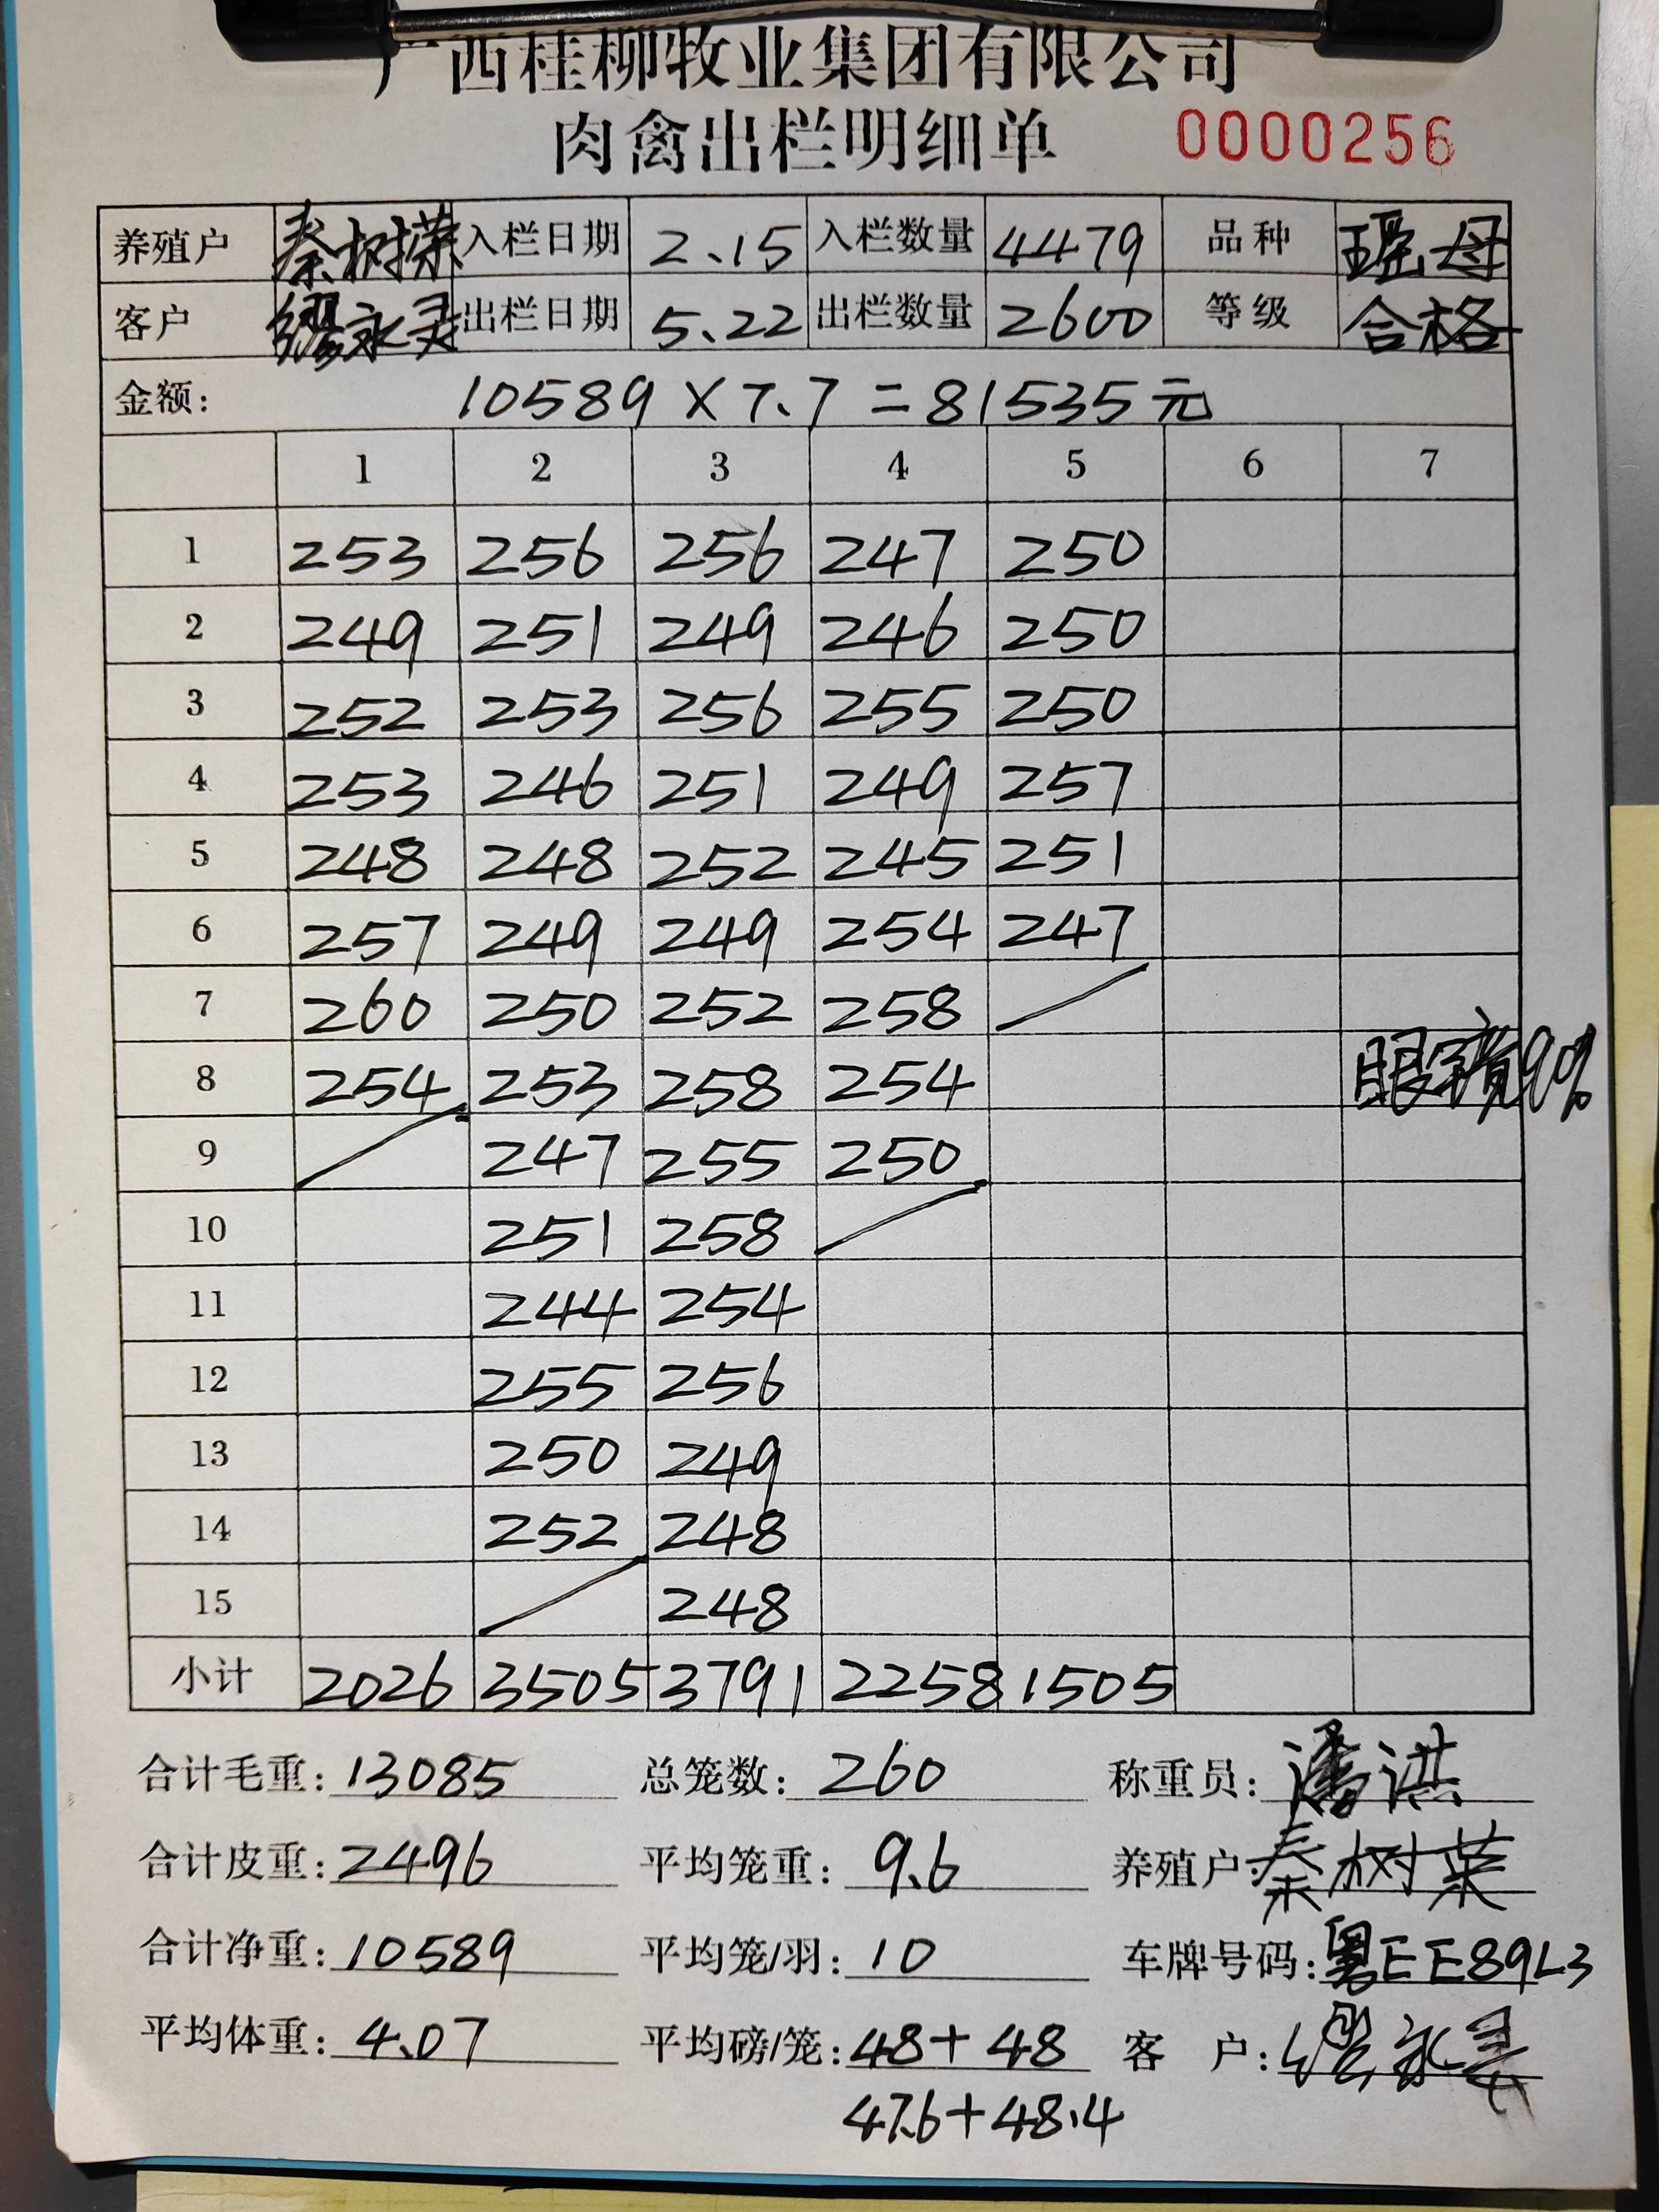 广西桂柳牧业集团有限公司
肉禽出栏明细单 0000256
养殖户 秦树荣 入栏日期 2.15 入栏数量 4479 品种 瑶母
客户 缪永灵 出栏日期 5.22 出栏数量 2600 等级 合格
金额: 10589 × 7.7 = 81535元
1 2 3 4 5 6 7
1 253 256 256 247 250
2 249 251 249 246 250
3 252 253 256 255 250
4 253 246 251 249 257
5 248 248 252 245 251
6 257 249 249 254 247
7 260 250 252 258
8 254 253 258 254 90%
9 247 255 250
10 251 258
11 244 254
12 255 256
13 250 249
14 252 248
15 248
小计 2026 3505 3791 2258 1505
合计毛重: 13085 总笼数: 260 称重员: 潘洪
合计皮重: 2496 平均笼重: 9.6 养殖户: 秦树荣
合计净重: 10589 平均笼/羽: 10 车牌号码: 粤EE89L3
平均体重: 4.07 平均磅/笼: 48+48 客户: 缪永灵
47.6+48.4